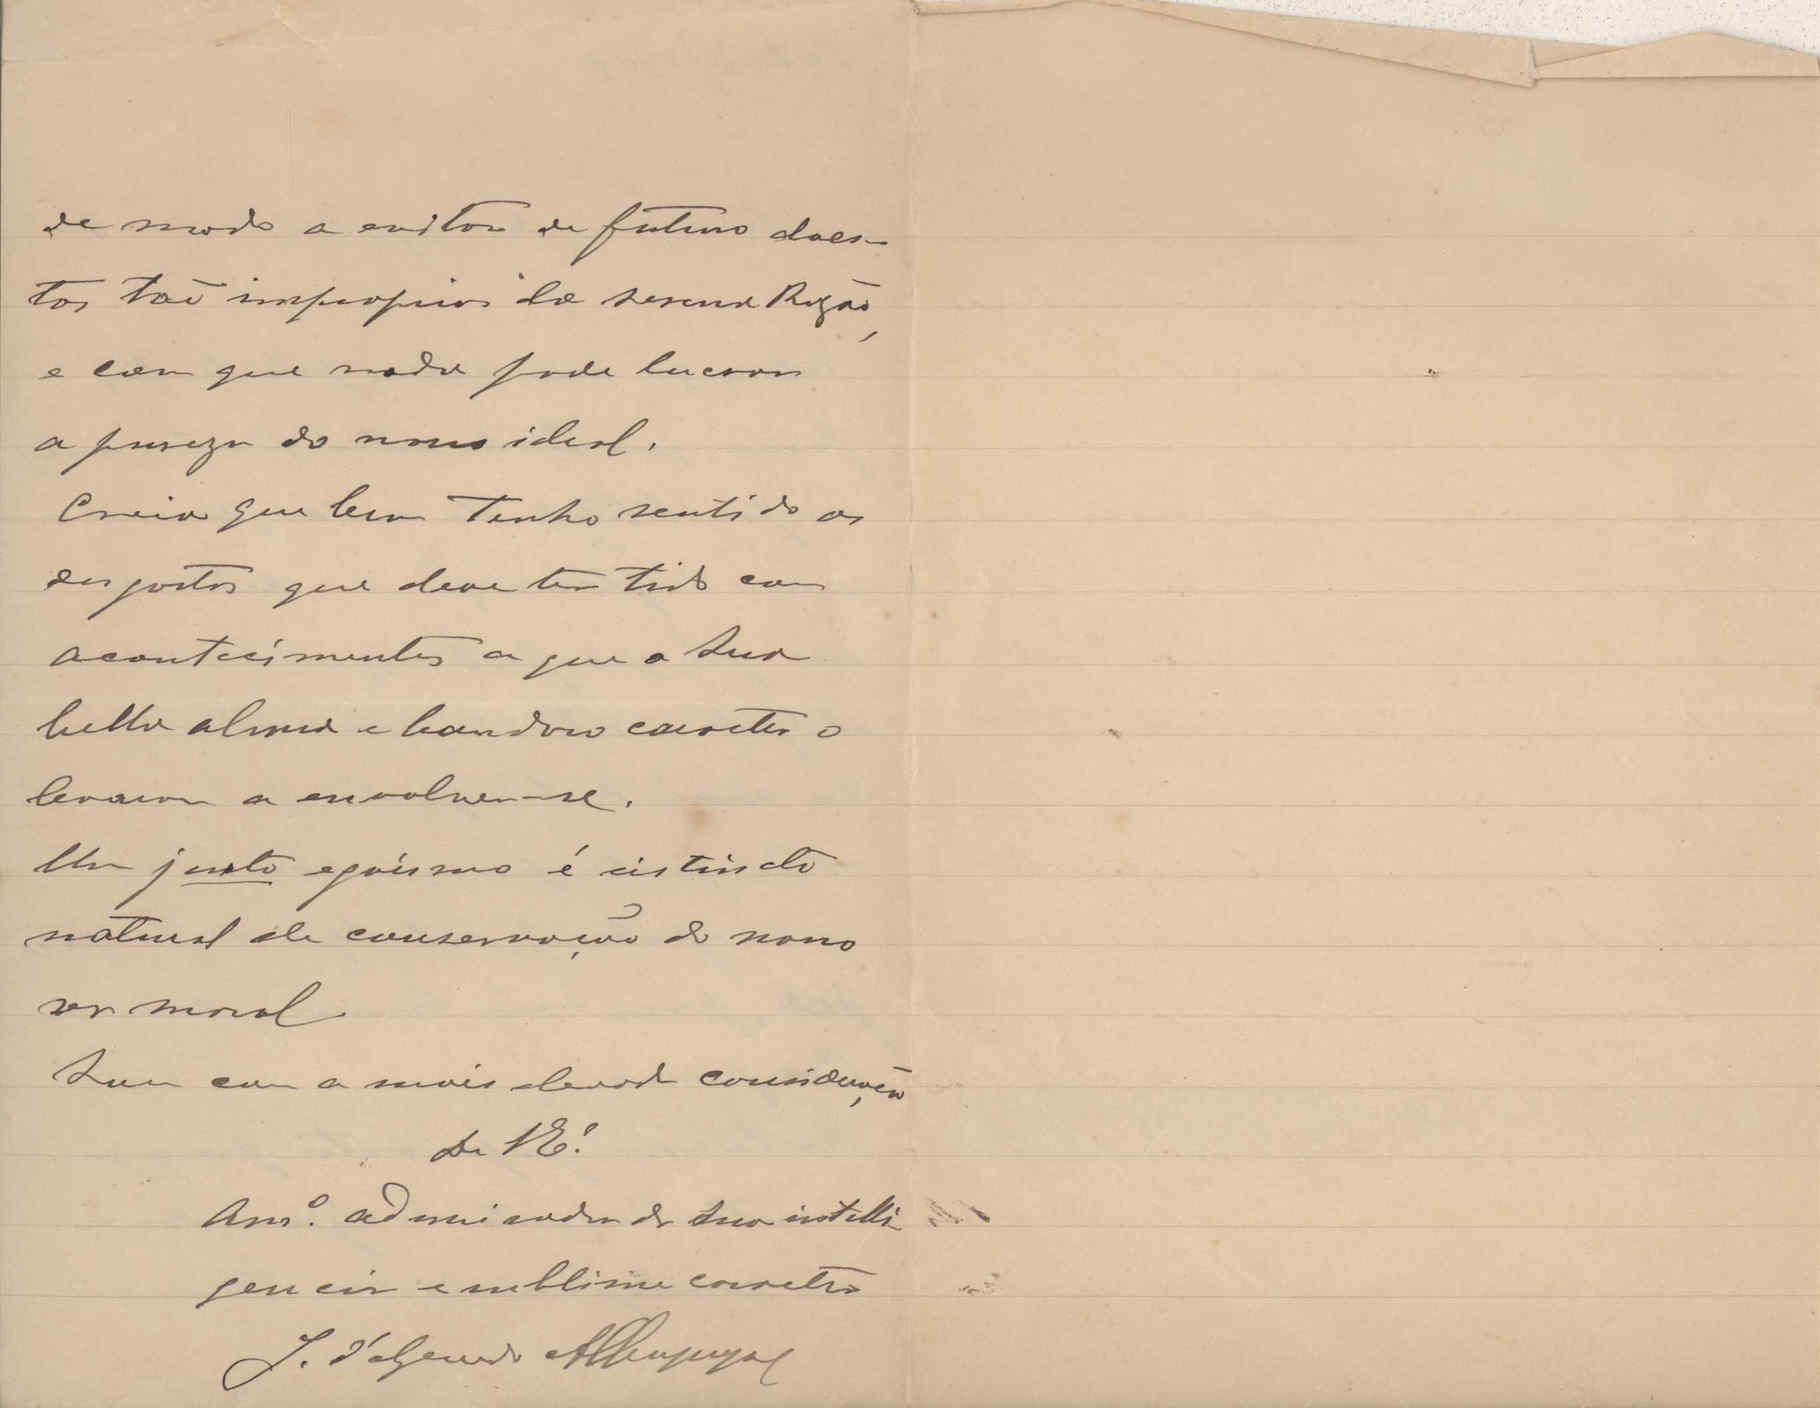 de modo a evitar de futuro does-
tos tão improprios da serena Razão,
e com que nada pode lucrar
a pureza do nosso ideal.
Creia que bem tenho sentido os
desgostos que deve ter tido com
acontecimentos a que a sua
bella alma e bondoso caracter o
levaram a envolver-se.
Um justo egoismo é instincto
natural de conservação do nosso
ser moral.
Sou com a mais elevada consideração
De V. E.ª
Am.º admirador da sua intelli-
gencia e sublime caracter
J. d'